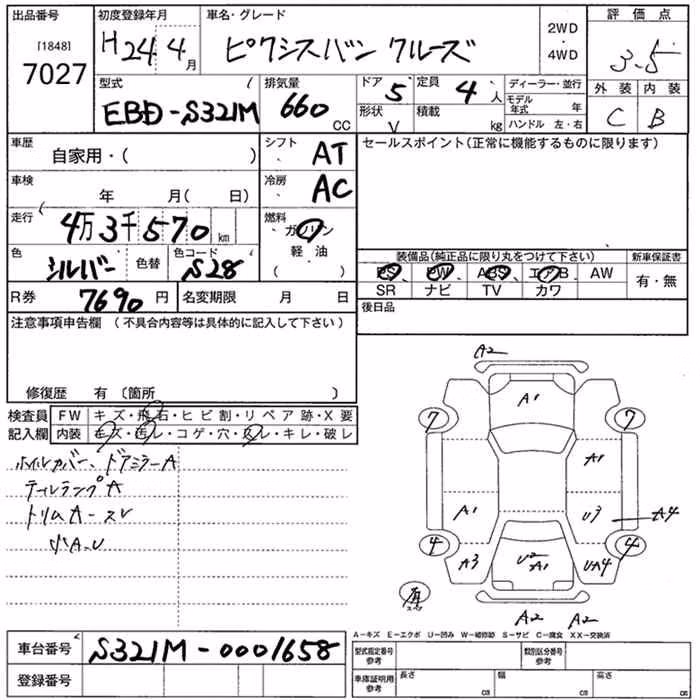 出品番号 初度登録年月 車名・グレード 評価点
[1848] 7027 H24 4月 ピクシスバン クルーズ 2WD 4WD 3.5
型式 排気量 ドア 5 定員 4人 ディーラー・並行 外装 内装
EBD-S321M 660 CC 形状 V 積載 kg モデル年式 年 C B
ハンドル 左・右
車歴 自家用・( ) シフト AT セールスポイント(正常に機能するものに限ります)
車検 年 月( 日) 冷房 AC
走行 4万3千570 km 燃料 ガソリン
色 シルバー 色替 色コード S28 軽油 ( )
装備品(純正品に限り丸をつけて下さい) 新車保証書
PS PW ABS エアB AW 有・無
SR ナビ TV カワ
R券 7690円 名変期限 月 日 後日品
注意事項申告欄 (不具合内容等は具体的に記入して下さい)
修復歴 有 〔箇所 〕
検査員 FW キズ・飛石・ヒビ割・リペア跡・X要
記入欄 内装 キズ・汚レ・コゲ・穴・スレ・キレ・破レ
ホイルカバー、ドアミラーA
テールランプA
小A.U
A2
A1
7 7
A1
A1 U3 A4
4 4
A3 U2 A1 UA4
A2 A2
A-キズ E-エクボ U-凹み W-補修跡 S-サビ C-腐食 XX-交換済
車台番号 S321M-0001658
登録番号
型式指定番号 参考 類別区分番号 参考
車庫証明用 参考 長さ cm 幅 cm 高さ cm